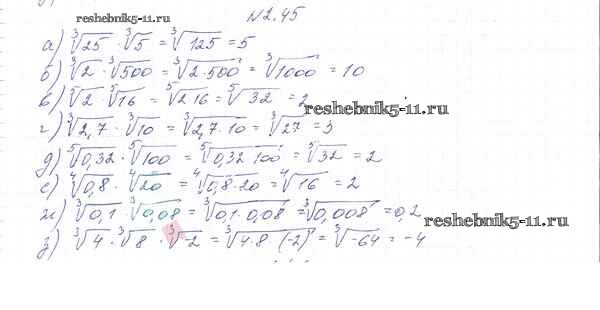 reshebnik5-11.ru
№2.45
а) ∛25 · ∛5 = ∛125 = 5
б) ∛2 · ∛500 = ∛2·500 = ∛1000 = 10
в) ⁵√2 · ⁵√16 = ⁵√2 16 = ⁵√32 = 2
reshebnik5-11.ru
г) ∛2,7 · ∛10 = ∛2,7·10 = ∛27 = 3
д) ⁵√0,32 · ⁵√100 = ⁵√0,32 100 = ⁵√32 = 2
е) ⁴√0,8 · ⁴√20 = ⁴√0,8·20 = ⁴√16 = 2
ж) ∛0,1 · ∛0,08 = ∛0,1·0,08 = ∛0,008 = 0,2
reshebnik5-11.ru
з) ∛4 · ∛8 · ∛-2 = ∛4·8 (-2) = ∛-64 = -4